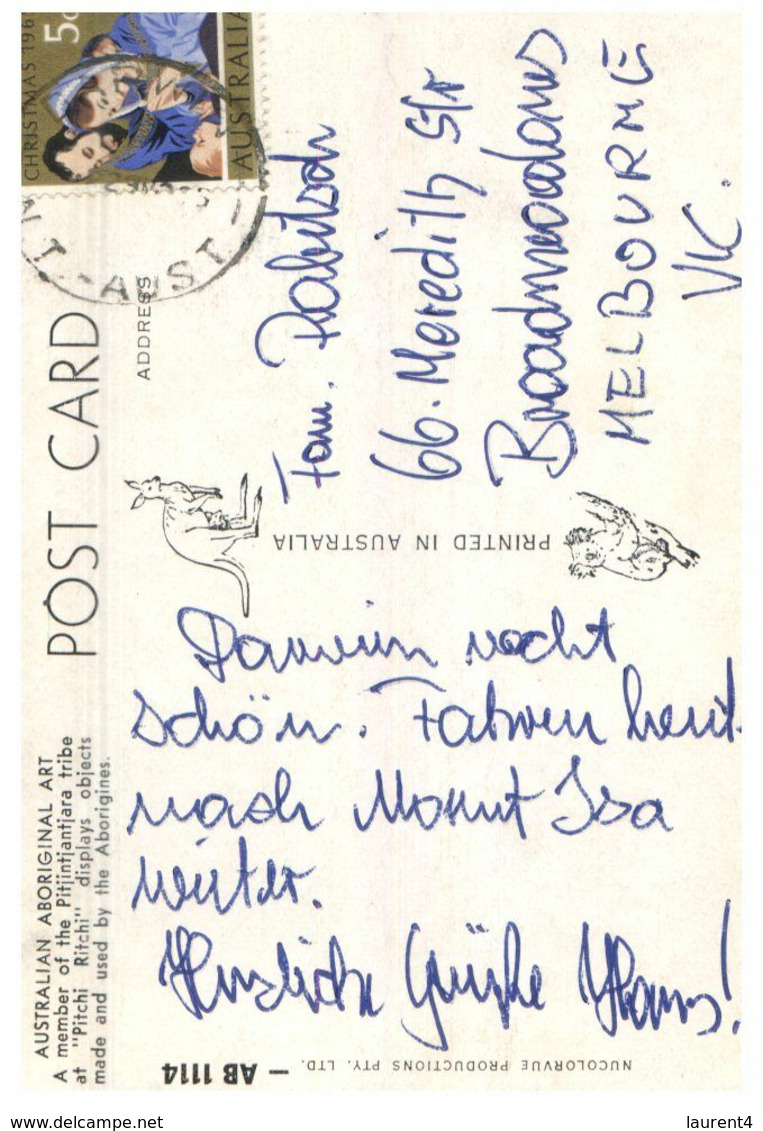 CHRISTMAS 196
5c
AUSTRALIA
AUST
AUSTRALIAN ABORIGINAL ART
A member of the Pitjintjantjara tribe
at "Pitchi Ritchi" displays objects
made and used by the Aborigines.
POST CARD
ADDRESS
Fam. Rabitsch
66. Meredith Str
Broadmeadows
MELBOURNE
VIC.
PRINTED IN AUSTRALIA
Darwin recht
schön. Fahren heut
nach Mount Isa
weiter.
Herzliche Grüße Hans!
NUCOLORVUE PRODUCTIONS PTY. LTD. — AB 1114
laurent4